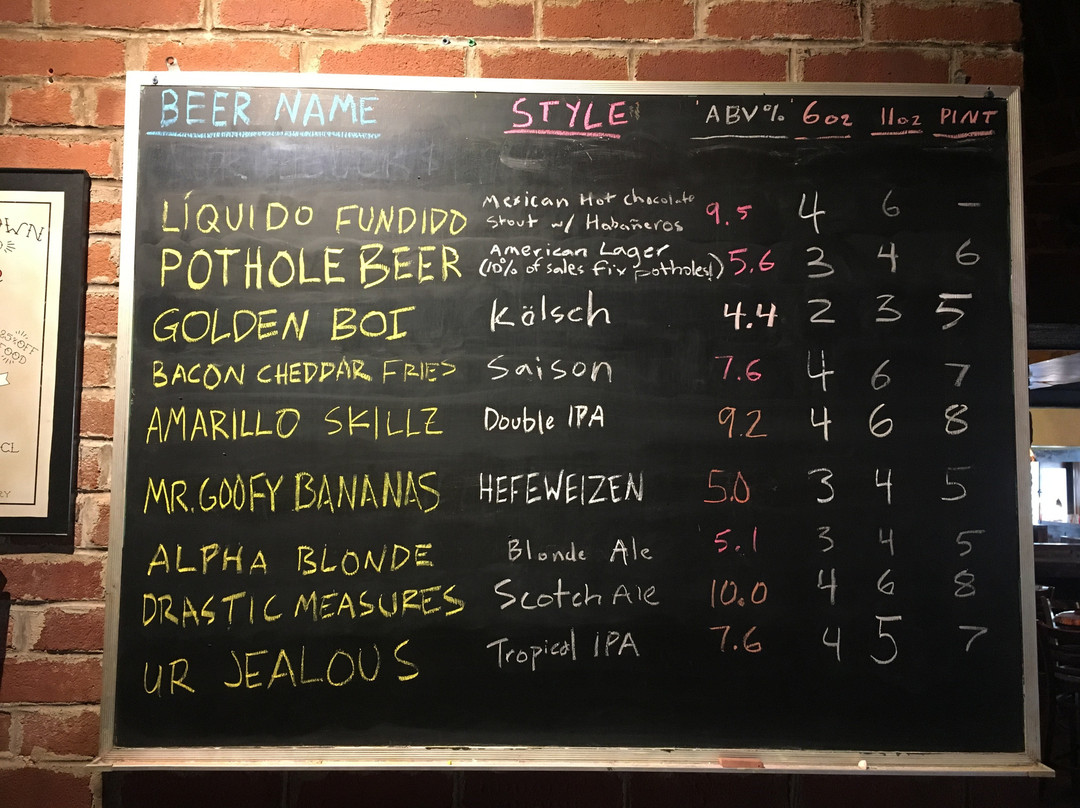 BEER NAME STYLE ABV% 6oz 11oz PINT
LÍQUIDO FUNDIDO Mexican Hot chocolate 9.5 4 6 –
Stout w/ Habañeros
POTHOLE BEER American Lager 5.6 3 4 6
(10% of sales fix potholes!)
GOLDEN BOI Kölsch 4.4 2 3 5
BACON CHEDDAR FRIES Saison 7.6 4 6 7
AMARILLO SKILLZ Double IPA 9.2 4 6 8
MR. GOOFY BANANAS HEFEWEIZEN 5.0 3 4 5
ALPHA BLONDE Blonde Ale 5.1 3 4 5
DRASTIC MEASURES Scotch Ale 10.0 4 6 8
UR JEALOUS Tropical IPA 7.6 4 5 7